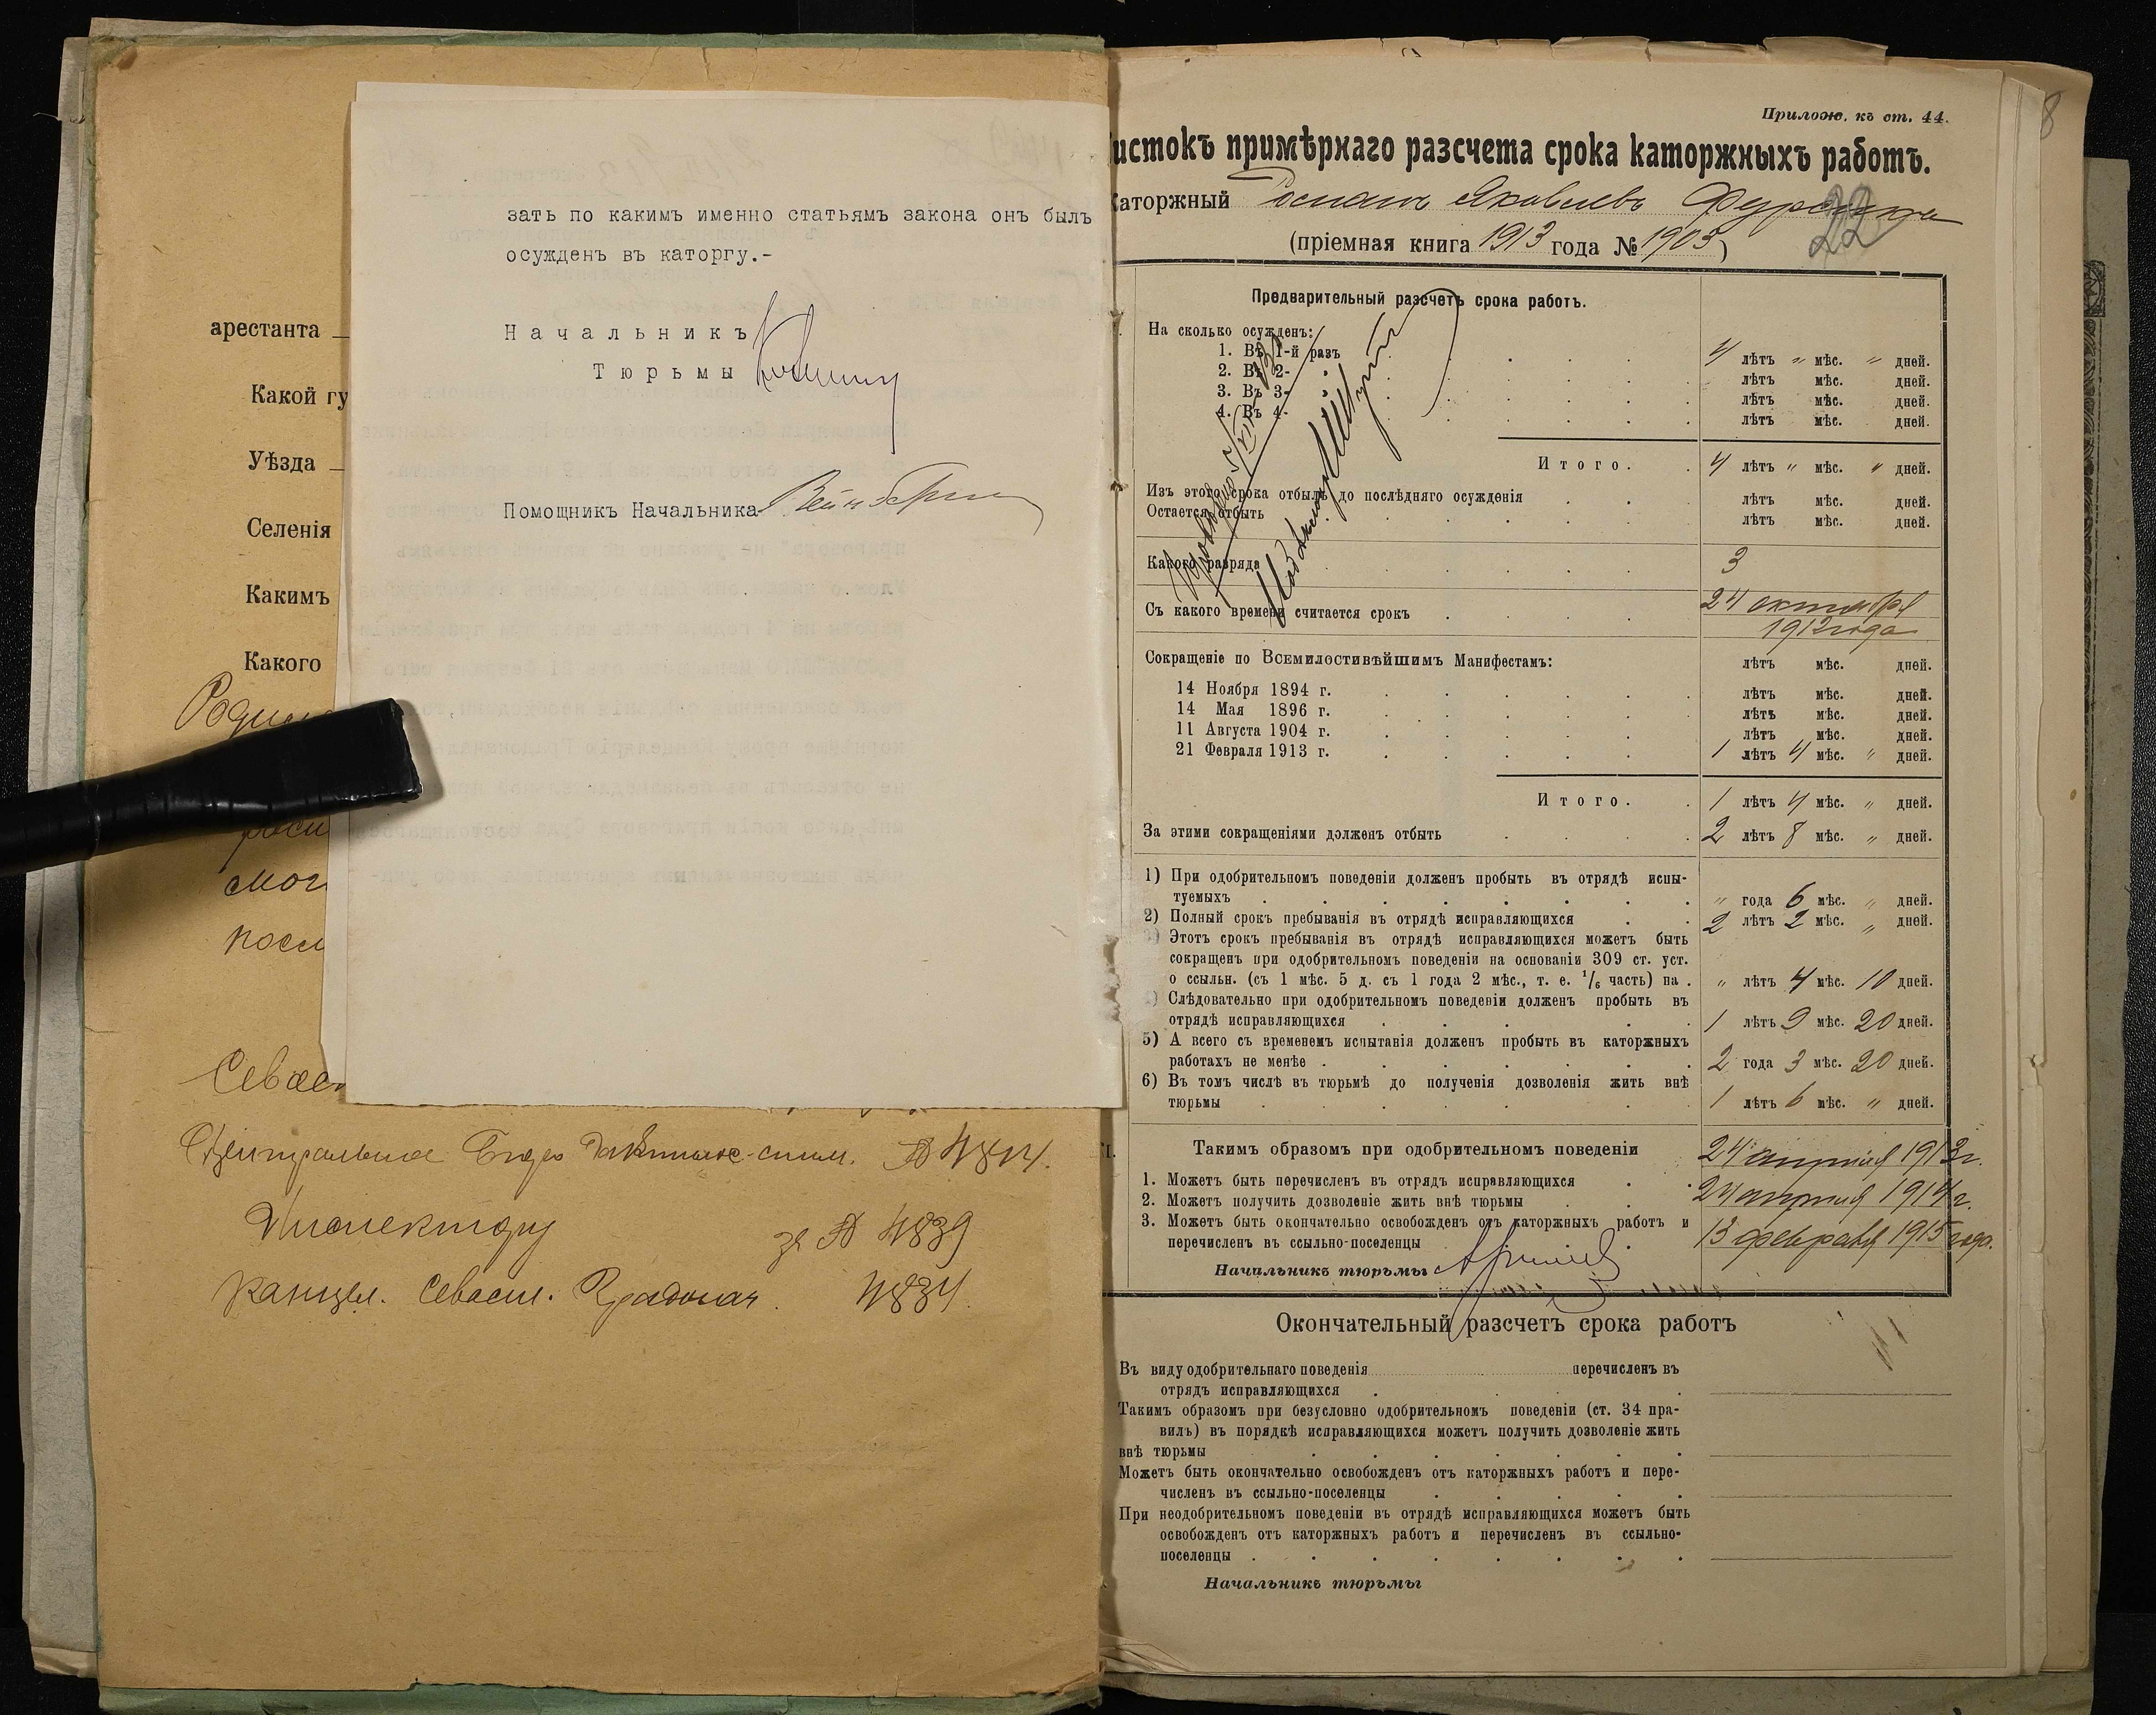 арестанта
Какой гу
Уѣзда
Селенія
Какимъ
Какого
смог
посл
Севаст
Центральное Бюро № 4814.
Инспектору за № 4839
Канцел. Севаст. Градонач. 4834
зать по какимъ именно статьямъ закона онъ былъ
осужденъ въ каторгу.-
Начальникъ
Тюрьмы
Помощникъ Начальника
8
Прилож. къ ст. 44.
истокъ примѣрнаго разсчета срока каторжныхъ работъ.
Каторжный Яковлевъ
22
(пріемная книга 1913 года № 1903)
Предварительный разсчетъ срока работъ.
На сколько осужденъ:
1. Въ 1-й разъ . . . . 4 лѣтъ " мѣс. " дней.
2. Въ 2- . . . . лѣтъ мѣс. дней.
3. Въ 3- . . . . лѣтъ мѣс. дней.
4. Въ 4- . . . . лѣтъ мѣс. дней.
Итого. . 4 лѣтъ " мѣс. " дней.
Изъ этого срока отбылъ до послѣдняго осужденія . . . лѣтъ мѣс. дней.
Остается отбыть . . . . лѣтъ мѣс. дней.
Какого разряда . . . . 3
Съ какого времени считается срокъ . . . 24 октября
1912 года
Сокращеніе по Всемилостивѣйшимъ Манифестамъ: лѣтъ мѣс. дней.
14 Ноября 1894 г. . . . . лѣтъ мѣс. дней.
14 Мая 1896 г. . . . . лѣтъ мѣс. дней.
11 Августа 1904 г. . . . . лѣтъ мѣс. дней.
21 Февраля 1913 г. . . . . 1 лѣтъ 4 мѣс. " дней.
Итого. . 1 лѣтъ 4 мѣс. " дней.
За этими сокращеніями долженъ отбыть . . . . 2 лѣтъ 8 мѣс. " дней.
1) При одобрительномъ поведеніи долженъ пробыть въ отрядѣ испы-
туемыхъ . . . . " года 6 мѣс. " дней.
2) Полный срокъ пребыванія въ отрядѣ исправляющихся . . 2 лѣтъ 2 мѣс. " дней.
3) Этотъ срокъ пребыванія въ отрядѣ исправляющихся можетъ быть
сокращенъ при одобрительномъ поведеніи на основаніи 309 ст. уст.
о ссыльн. (съ 1 мѣс. 5 д. съ 1 года 2 мѣс., т. е. 1/6 часть) на . " лѣтъ 4 мѣс. 10 дней.
) Слѣдовательно при одобрительномъ поведеніи долженъ пробыть въ
отрядѣ исправляющихся . . . . 1 лѣтъ 9 мѣс. 20 дней.
5) А всего съ временемъ испытанія долженъ пробыть въ каторжныхъ
работахъ не менѣе . . . . 2 года 3 мѣс. 20 дней.
6) Въ томъ числѣ въ тюрьмѣ до полученія дозволенія жить внѣ
тюрьмы . . . . 1 лѣтъ 6 мѣс. " дней.
Такимъ образомъ при одобрительномъ поведеніи
1. Можетъ быть перечисленъ въ отрядъ исправляющихся . . 24 апрѣля 1913 г.
2. Можетъ получить дозволеніе жить внѣ тюрьмы . . 24 апрѣля 1914 г.
3. Можетъ быть окончательно освобожденъ отъ каторжныхъ работъ и
перечисленъ въ ссыльно-поселенцы . . 13 февраля 1915 года.
Начальникъ тюрьмы
Окончательный разсчетъ срока работъ
Въ виду одобрительнаго поведенія перечисленъ въ
отрядъ исправляющихся . . .
Такимъ образомъ при безусловно одобрительномъ поведеніи (ст. 34 пра-
вилъ) въ порядкѣ исправляющихся можетъ получить дозволеніе жить
внѣ тюрьмы . . . .
Можетъ быть окончательно освобожденъ отъ каторжныхъ работъ и пере-
численъ въ ссыльно-поселенцы . . .
При неодобрительномъ поведеніи въ отрядѣ исправляющихся можетъ быть
освобожденъ отъ каторжныхъ работъ и перечисленъ въ ссыльно-
поселенцы . . . .
Начальникъ тюрьмы